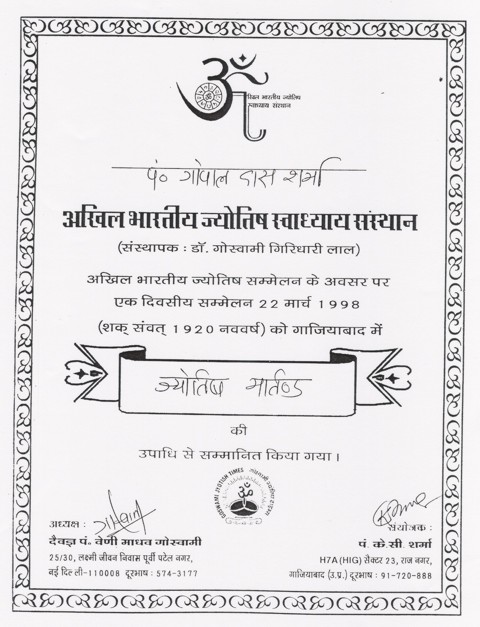 अखिल भारतीय ज्योतिष
स्वाध्याय संस्थान
पं० गोपाल दास शर्मा
अखिल भारतीय ज्योतिष स्वाध्याय संस्थान
(संस्थापक : डॉ. गोस्वामी गिरिधारी लाल)
अखिल भारतीय ज्योतिष सम्मेलन के अवसर पर
एक दिवसीय सम्मेलन 22 मार्च 1998
(शक् संवत् 1920 नववर्ष) को गाजियाबाद में
ज्योतिष मार्तण्ड
की
उपाधि से सम्मानित किया गया।
GOSWAMI JYOTISH TIMES
अध्यक्ष :
दैवज्ञ पं. वेणी माधव गोस्वामी
25/30, लक्ष्मी जीवन निवास पूर्वी पटेल नगर,
नई दिल्ली-110008 दूरभाष : 574-3177
संयोजक :
पं. के.सी. शर्मा
H7A (HIG) सैक्टर 23, राज नगर,
गाजियाबाद (उ.प्र.) दूरभाष : 91-720-888